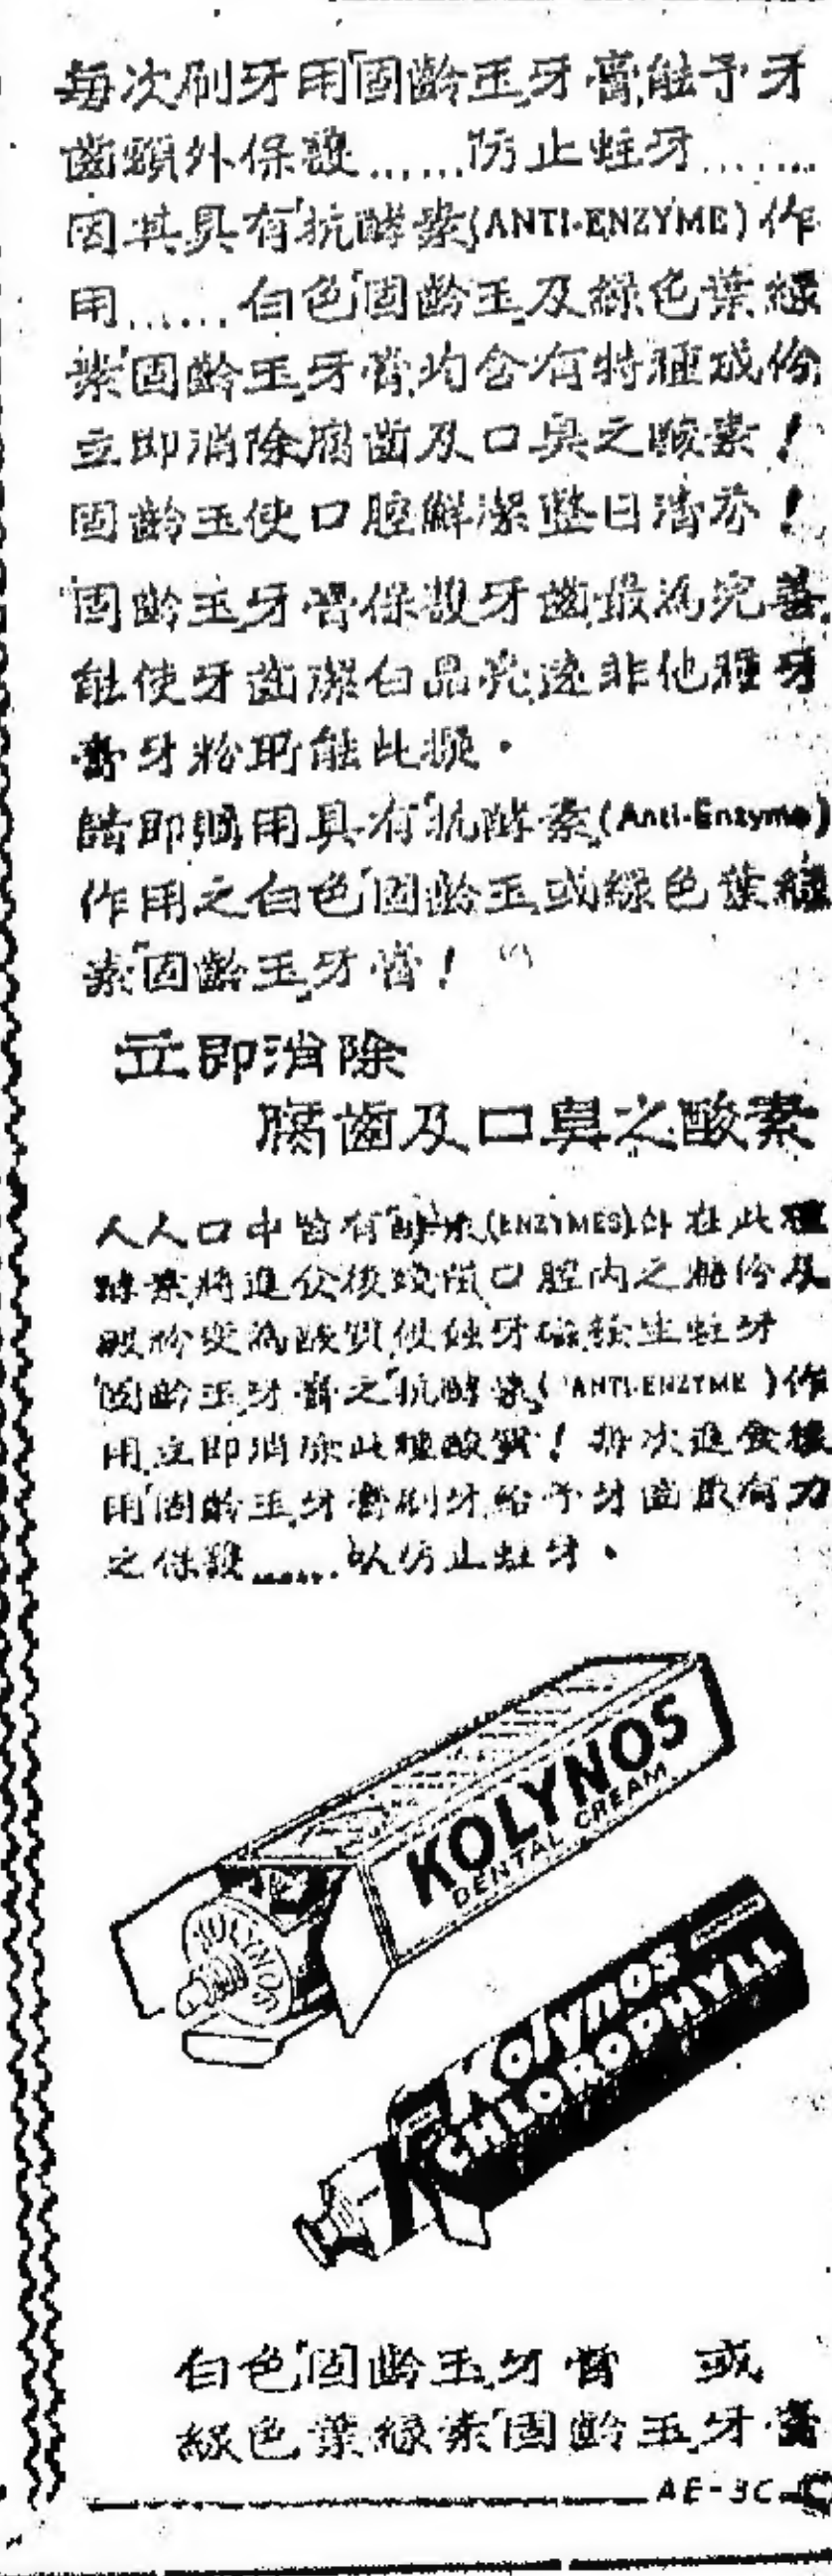 每次刷牙用「固齡玉」牙膏能予牙
齒額外保護......防止蛀牙.......
因其具有「抗酵素」(ANTI-ENZYME)作
用......白色「固齡玉」及綠色葉綠
素「固齡玉」牙膏均含有特種成份
立即消除腐齒及口臭之酸素！
固齡玉使口腔鮮潔整日清芬！
「固齡玉」牙膏保護牙齒最為完善
能使牙齒潔白晶亮遠非他種牙
膏牙粉所能比擬。
請即購用具有「抗酵素」(Anti-Enzyme)
作用之白色「固齡玉」或綠色葉綠
素「固齡玉」牙膏！
立即消除
腐齒及口臭之酸素
人人口中皆有「酵素」(ENZYMES)存在此種
酵素將進食後殘留口腔內之糖份及
澱粉變為酸質侵蝕牙磁發生蛀牙
「固齡玉」牙膏之「抗酵素」(ANTI-ENZYME)作
用立即消除此種酸質！每次進食後
用「固齡玉」牙膏刷牙給予牙齒最有力
之保護......以防止蛀牙。
KOLYNOS
DENTAL CREAM
KOLYNOS
Kolynos
CHLOROPHYLL
白色「固齡玉」牙膏 或
綠色葉綠素「固齡玉」牙膏
AE-3C